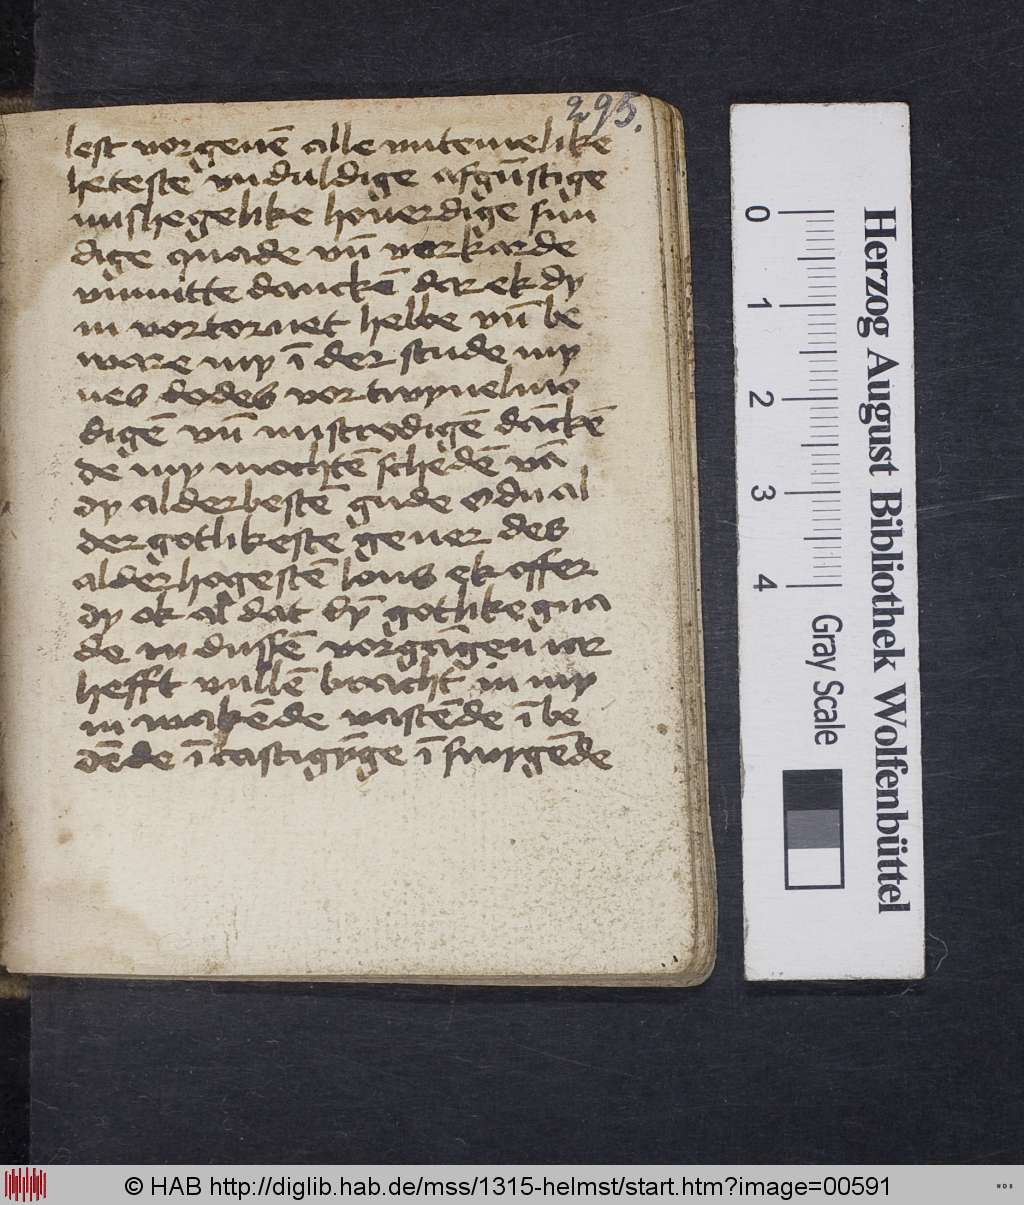 295.
lest vorgeuē alle vntemelike
heteste vnduldige afgūstige
mishegelike houerdige sun
dige quade vn̄ vorkarde
vnnutte danckē dar ek dy
in vortornet hebbe vn̄ be
ware my ī der stude my
nes dodes vor twyuelmo
digē vn̄ mistrodigē dāckē
de my mochtē schedē vā
dy alderbestē gude O du al
dergotlikeste geuer des
alderhogestē lons ek offer
dy ok al dat dȳ gotlike gna
de in dussē vorgāgen iar
hefft vullēbracht in my
in wakēde vastēde ī be
dēde ī castigȳge ī swygēde
Herzog August Bibliothek Wolfenbüttel
0 1 2 3 4
Gray Scale
© HAB http://diglib.hab.de/mss/1315-helmst/start.htm?image=00591